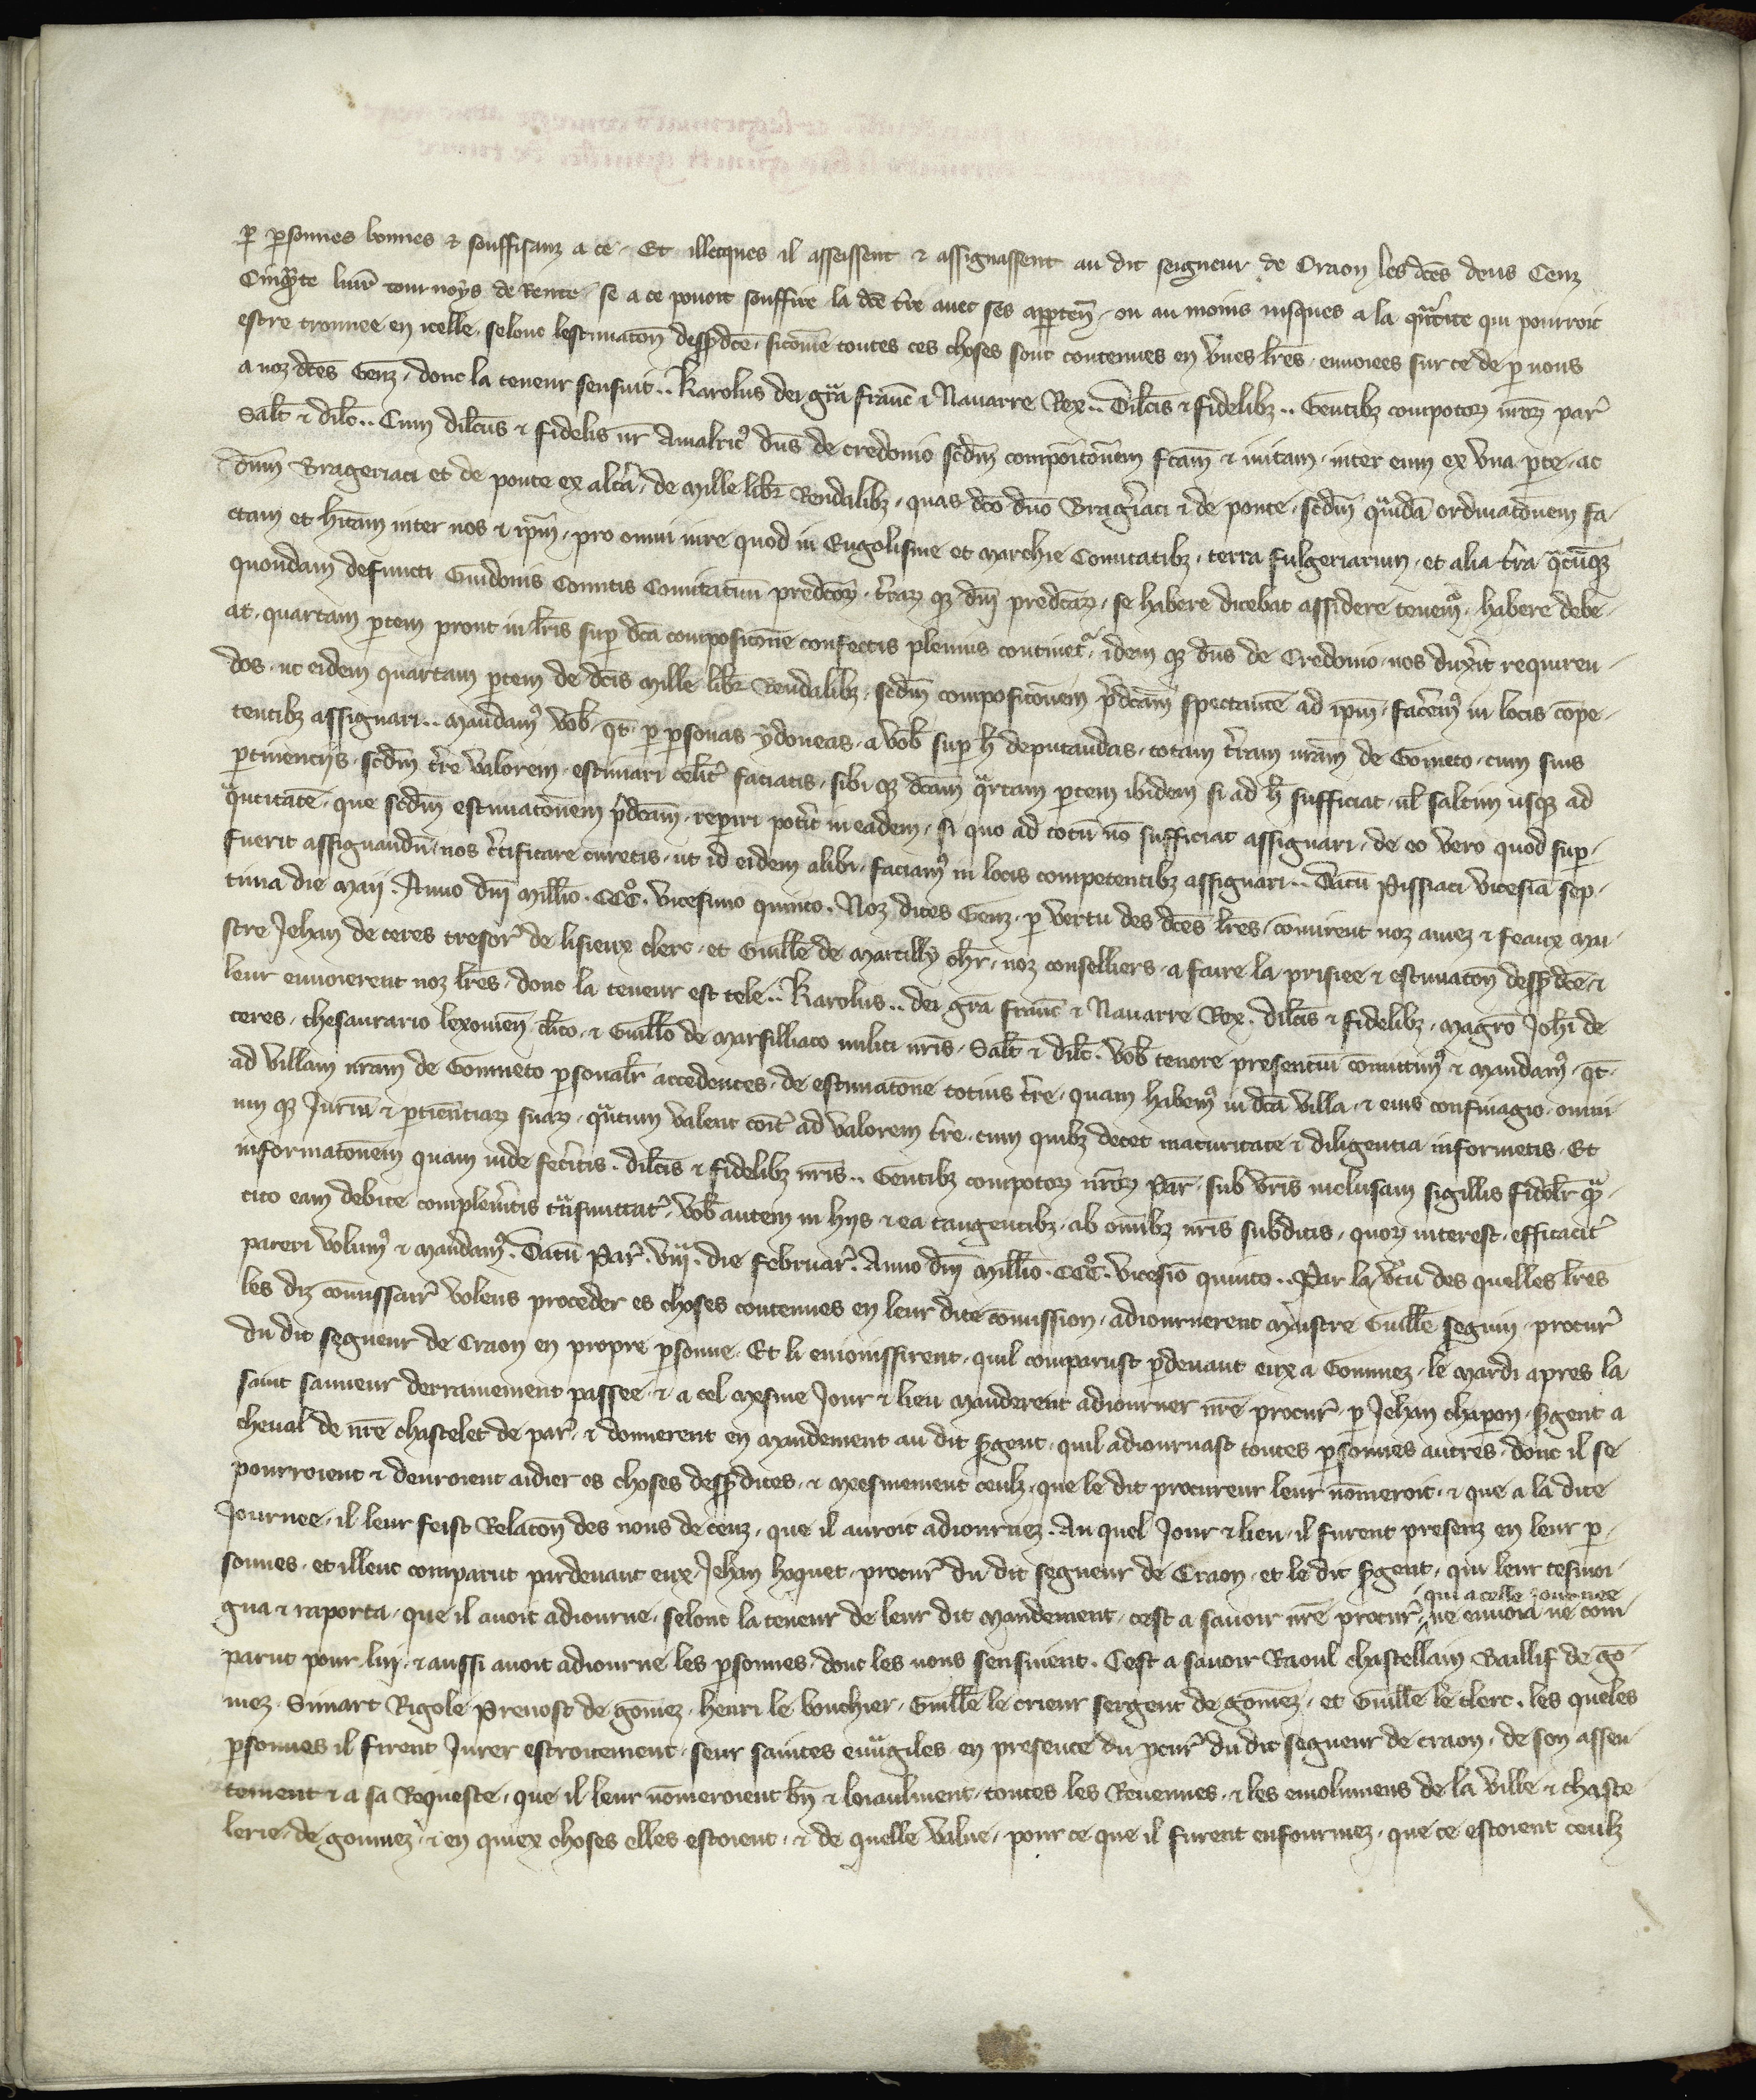 ꝑ ꝑsonnes bonnes ⁊ souffisanz a ce. Et illecques il asseissent ⁊ assignassent au dit seigneur de Craon les dc̄es deus Cenz
Cinqᵃ̄te liur̄ tournoys de Rente. se a ce pouoit souffire la dc̄e t̄re auec ses apꝑten̄. ou au moins iusques a la qᵃ̄tite qui pourroit
estre trouuee en icelle. selonc lestimatōn dess̄dc̄e. sicōme toutes ces choses sont contenues en vnes lr̄es. enuoiees sur ce de ꝑ nous
a noz dc̄es Genz. donc la teneur sensuit.. Karolus dei gr̄a franc̄ ⁊ Nauarre Rex.. Dilc̄is ⁊ fidelibꝫ.. Gentibꝫ compotoꝝ nr̄oꝝ par̄
Salt̄ ⁊ dilc̄.. Cum dilc̄us ⁊ fidelis nr̄ Amalricꝰ dn̄s de credonio scd̄m compoīcōnem fc̄am ⁊ initam. inter eum ex vna ꝑte. ac
dn̄m Brageriaci et de ponte ex alta. de Mille libr̄ Rendalibꝫ. quas dc̄o dn̄o Brag̓iaci ⁊ de ponte. scd̄m qᵃ̄ndā ordinatōnem fa-
ctam et hītam inter nos ⁊ ip̄m. pro omni iure quod in Engolisme et Marchie Comitatibꝫ. terra fulgeriarum. et alia t̄ra qᵃcūqꝫ
quondam defuncti Guidonis Comitis Comitatuū predc̄oꝝ. t̄raꝝ qꝫ dn̄i predc̄aꝝ. se habere dicebat assidere tenemꝰ. habere debe-
at. quartam ꝑtem prout in lr̄is suꝑ dc̄a compositōne confectis plenius continetᷣ. idem qꝫ dn̄s de Credonio. nos duxīt requiren-
dos. ut eidem quartam ꝑtem de dc̄is Mille libr̄ Rendalibꝫ. scd̄m compositōnem p̄dc̄am spectantē ad ip̄m. fac̄emꝰ in locis cōpe-
tentibꝫ assignari.. Mandamꝰ vob̄. qt̄. ꝑ ꝑsonas ydoneas. a vob̄ suꝑ h̄ deputandas. totam t̄ram nr̄am de Gometo. cum suis
ꝑtinencijs. scd̄m t̄re valorem. estimari celit̓ faciatis. sibi qꝫ dc̄am qᵃrtam ꝑtem ibidem si ad h̄ sufficiat. ul̄ saltim usqꝫ ad
qᵃ̄ntitatē. que scd̄m estimatōnem p̄dc̄am. reꝑiri potīt in eadem. si quo ad totū nō sufficiat assignari. de eo vero quod suꝑ-
fuerit assignandū. nos c̄tificare curetis. ut id eidem alibi. faciamꝰ in locis competentibꝫ assignari.. Datū Pissiaci vicesīa sep-
tima die Maij. Anno dn̄i Mill̄io. CCCᵒ. vicesimo quinto. Noz dites Genz. ꝑ vertu des dc̄es lr̄es. cōmirent noz amez ⁊ feaux Mai-
stre Jehan de ceres tresor̄ de lisieux clerc. et Guill̄e de Marcilly ch̄r. noz conselliers. a faire la prisiee ⁊ estimatōn dess̄dc̄e. ⁊
leur enuoierent noz lr̄es. donc la teneur est tele.. Karolus.. dei gr̄a franc̄ ⁊ Nauarre Rex. dilc̄is ⁊ fidelibꝫ. Magr̄o Joh̄i de
ceres. thesaurario lexouien̄ cl̄ico. ⁊ Guill̄o de Marsilliaco militi nr̄is. Salt̄ ⁊ dilc̄. vob̄ tenore presentiū cōmittimꝰ ⁊ Mandamꝰ. qt̄.
ad villam nr̄am de Gommeto ꝑsonalr̄ accedentes. de estimatōne totius t̄re. quam habemꝰ in dc̄a villa. ⁊ eius confinagio. omni-
um qꝫ Juriū ⁊ ꝑtinēntiaꝝ suaꝝ. qᵃntum valent cōit̓ ad valorem t̄re. cum quibꝫ decet maturitate ⁊ diligentia informetis. Et
informatōnem quam inde fec̓itis. dilc̄is ⁊ fidelibꝫ nr̄is.. Gentibꝫ compotoꝝ nr̄oꝝ Par̄. sub vr̄is inclusam sigillis fidelr̄ qᵃ-
cito eam debite compleu̓itis tᵃ̄nsmittatꝭ. vob̄ autem in hijs ⁊ ea tangentibꝫ. ab om̄ibꝫ nr̄is subditis. quoꝝ interest. efficacit̓
pareri volumꝰ ⁊ mandamꝰ. Datū Par̄. viijᵃ. die februar̄. Anno dn̄i Mill̄io. CCCᵒ. vicesīo quinto.. Par la v̓tu des quelles lr̄es
les diz cōmissair̄ volens proceder es choses contenues en leur dite cōmission. adiournerent Maistre Guill̄e seguin. procur̄
du dit segneur de Craon en propre ꝑsonne. Et li enioinssirent. quil comparust ꝑdeuant eux a Gommez. le Mardi apres la
saint sauueur derrainement passee. ⁊ a cel mesme Jour ⁊ lieu manderent adiourner nr̄e procur̄. ꝑ Jehan chapon. s̓gent a
cheual de nr̄e chastelet de par̄. ⁊ donnerent en Mandement au dit s̓gent. quil adiournast toutes ꝑsonnes autres. donc il se
pourroient ⁊ deuroient aidier es choses dess̄dites. ⁊ meesmement ceulz. que le dit procureur leur nōmeroit. ⁊ que a la dite
Journee. il leur feist Relatōn des nons de ceuz. que il auroit adiournez. Au quel Jour ⁊ lieu. il furent presenz en leur ꝑ-
sonnes. et illeuc comparut pardeuant eux. Jehan hoquet. procur̄ du dit segneur de Craon. et le dit s̓gent. qui leur tesmoi-
qui a celle journee
gna ⁊ raporta. que il auoit adiourne. selont la teneur de leur dit mandement. cest a sauoir nr̄e procur̄. ne enuoia ne com-
parut pour luj. ⁊ aussi auoit adiourne les ꝑsonnes. donc les nons sensiuent. Cest a sauoir Raoul chastellain Baillif de gō-
mez. Simart Rigole Preuost de gōmez. henri le bouchier. Guill̄e le crieur sergent de gomēz. et Guill̄e le clerc. les queles
ꝑsonnes il firent Jurer estroitement. seur saintes euuᵃ̄giles. en presence du ꝓcur̄ du dit segneur de craon. de son assen-
tement ⁊ a sa Requeste. que il leur nōmeroient bn̄ ⁊ loiaulment. toutes les Reuenues. ⁊ les emolumens de la ville ⁊ chaste-
lerie. de gommez. ⁊ en quiex choses elles estoient. ⁊ de quelle value. pour ce que il furent enfourmez. que ce estoient ceulz